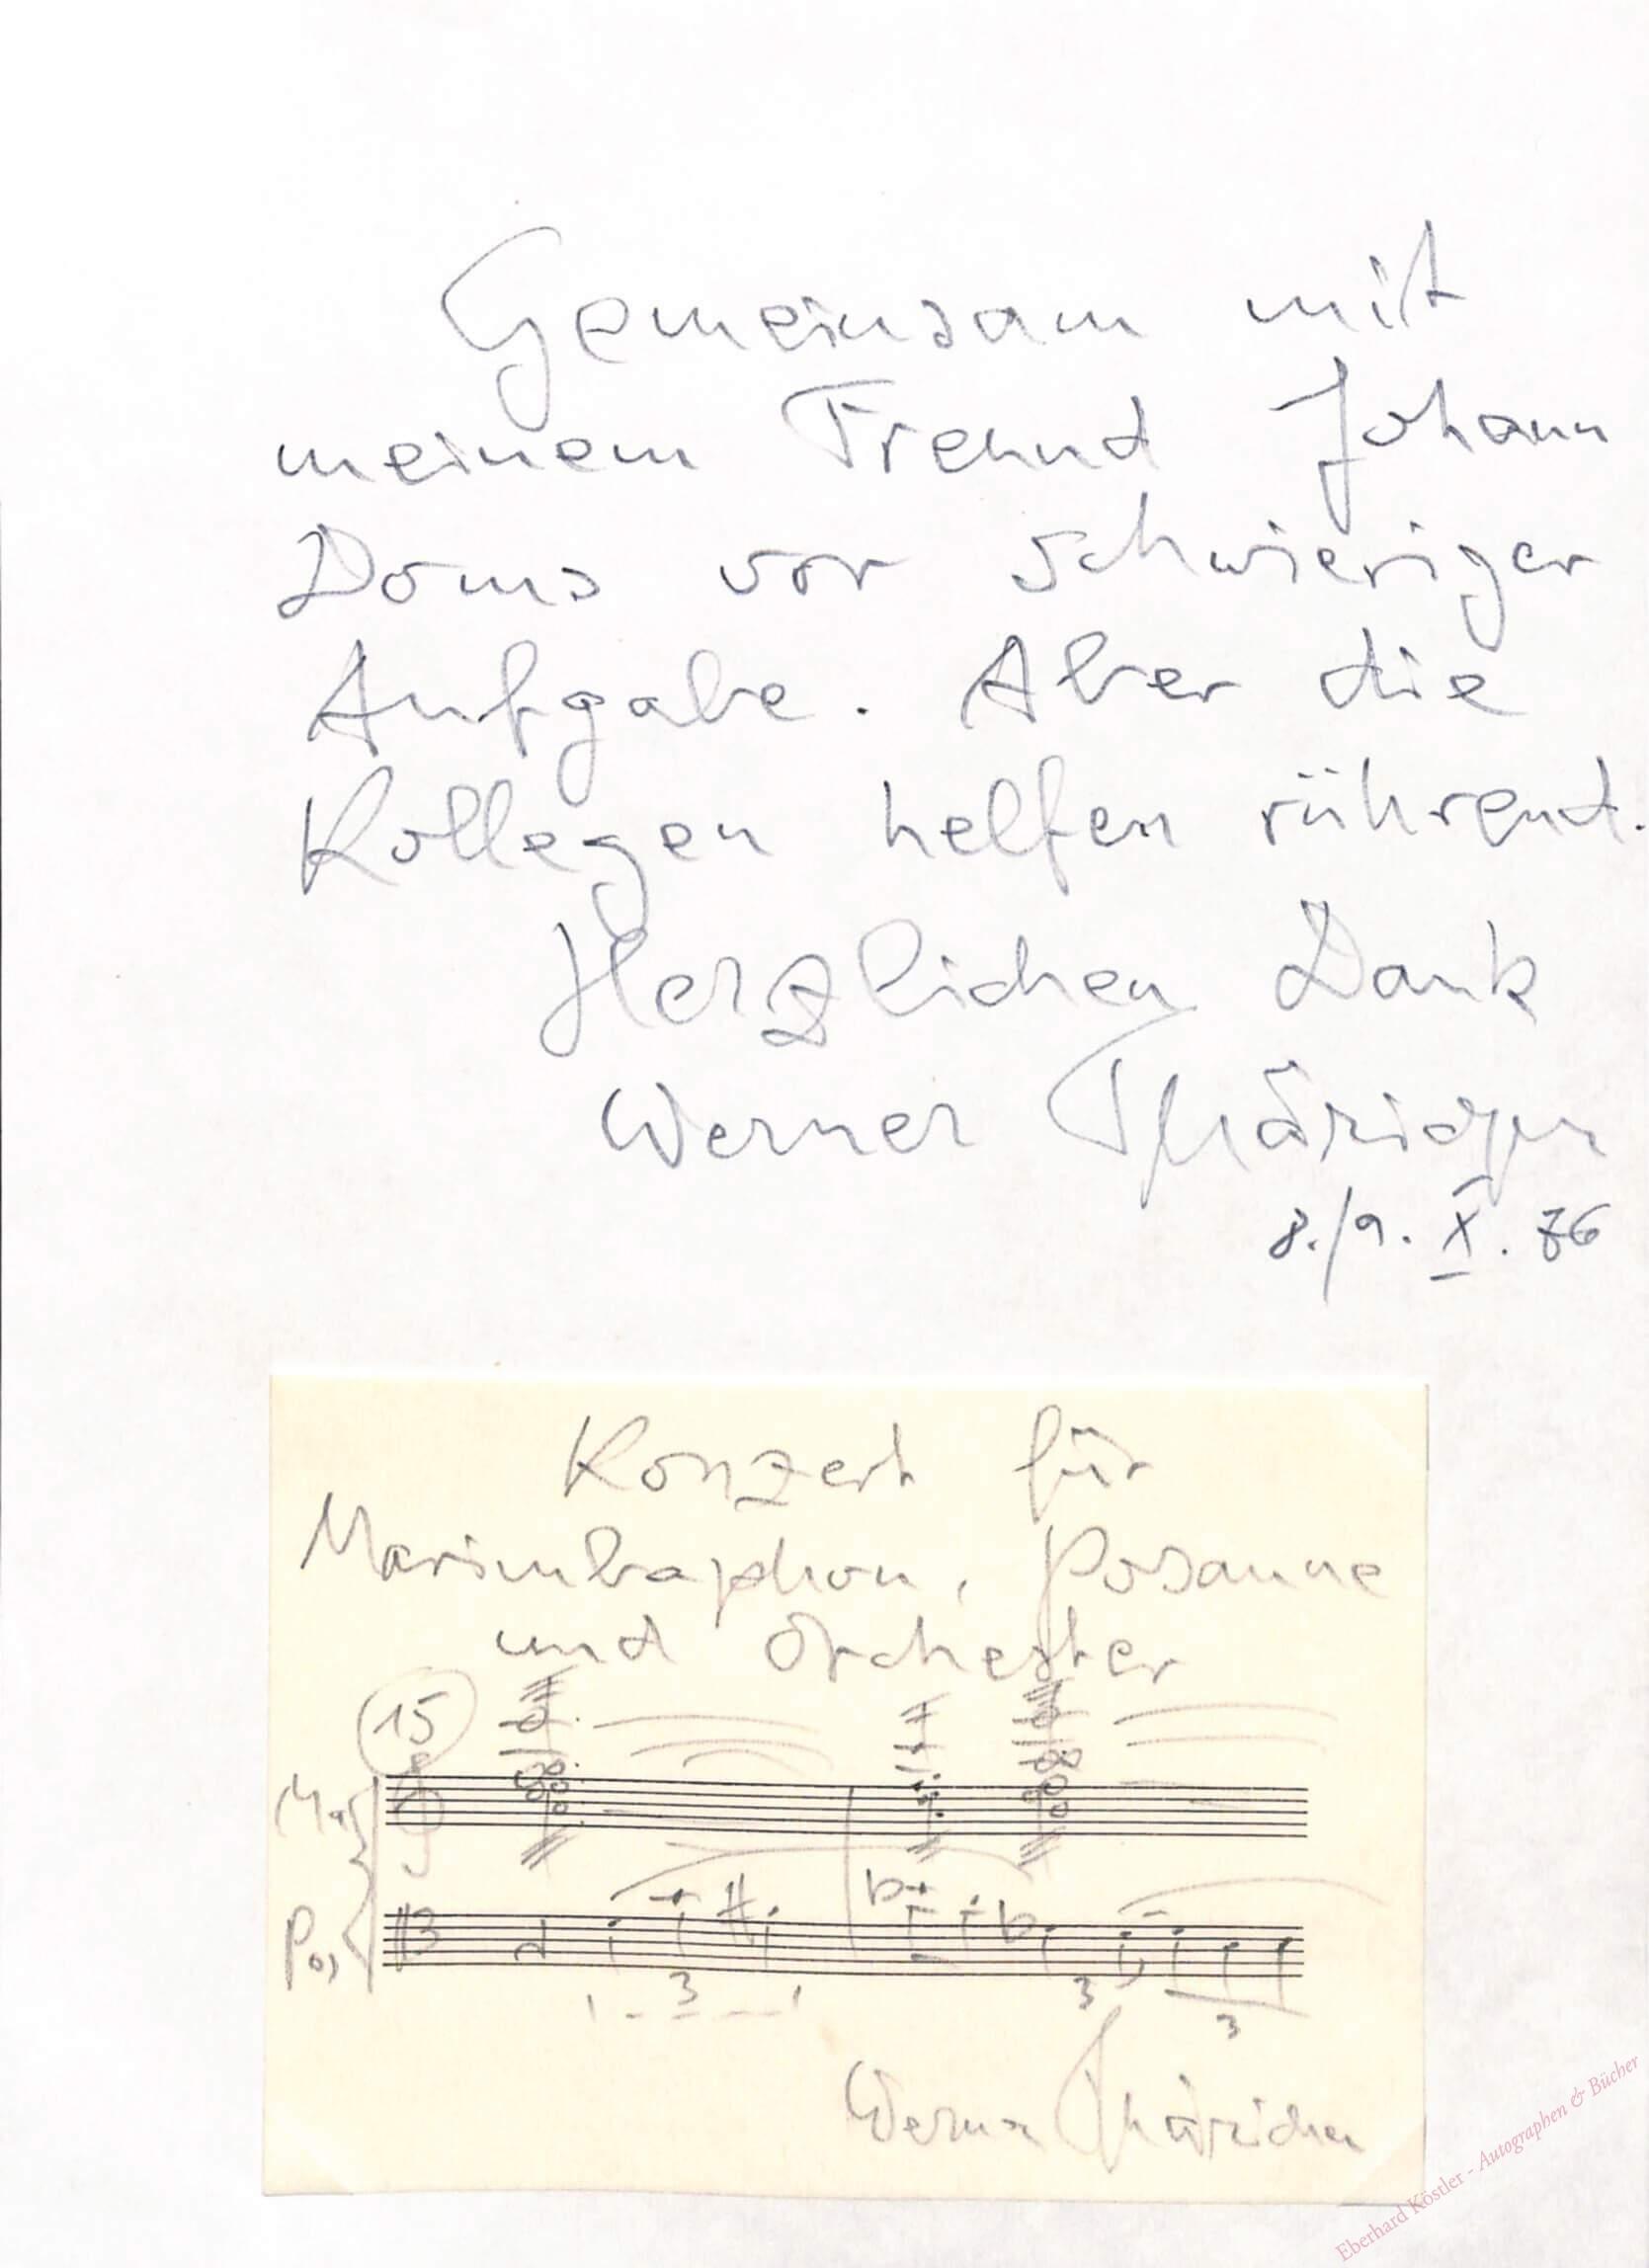 Gemeinsam mit
meinem Freund Johann
Doms vor schwieriger
Aufgabe. Aber die
Kollegen helfen rührend.
Herzlichen Dank
Werner Thärichen
8./9. X. 76
Konzert für
Marimbaphon, Posaune
und Orchester
15
Ma
Pos
3
3
3
Werner Thärichen
Eberhard Köstler - Autographen & Bücher